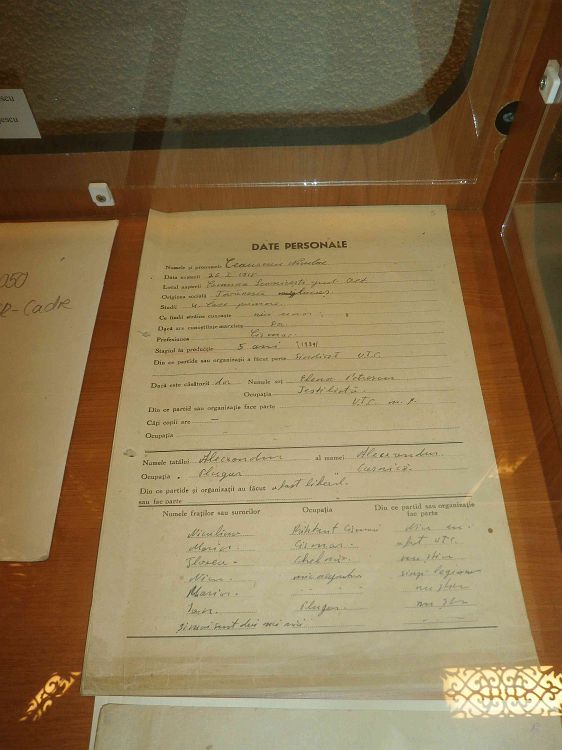 escu
gescu
050
R-Cadre
DATE PERSONALE
Numele și pronumele Ceaușescu Nicolae
Data nașterii 26 I 1918
Locul nașterii Comuna Scornicești jud. Olt
Originea socială Țărănesc mijlociu
Studii 4 clase primare
Ce limbi străine cunoaște nici una
Dacă are cunoștințe marxiste Da
Profesiunea Cismar
Stagiul în producție 5 ani (1934)
Din ce partide sau organizații a făcut parte Sindicat U.T.C.
Dacă este căsătorit da Numele soț. Elena Petrescu
Ocupația Textilistă
Din ce partid sau organizație face parte U.T.C.
Câți copii are —
Ocupația
Numele tatălui Alexandru al mamei Alexandrina
Ocupația " Plugar " Casnică
Din ce partide și organizații au făcut a fost liberal
sau fac parte
Numele fraților sau surorilor Ocupația Din ce partid sau organizație
fac parte
Niculina
Marin Cismar a fost U.T.C.
Florea nu știu
Nicu
Maria " " nu știu
Ion Plugar nu știu